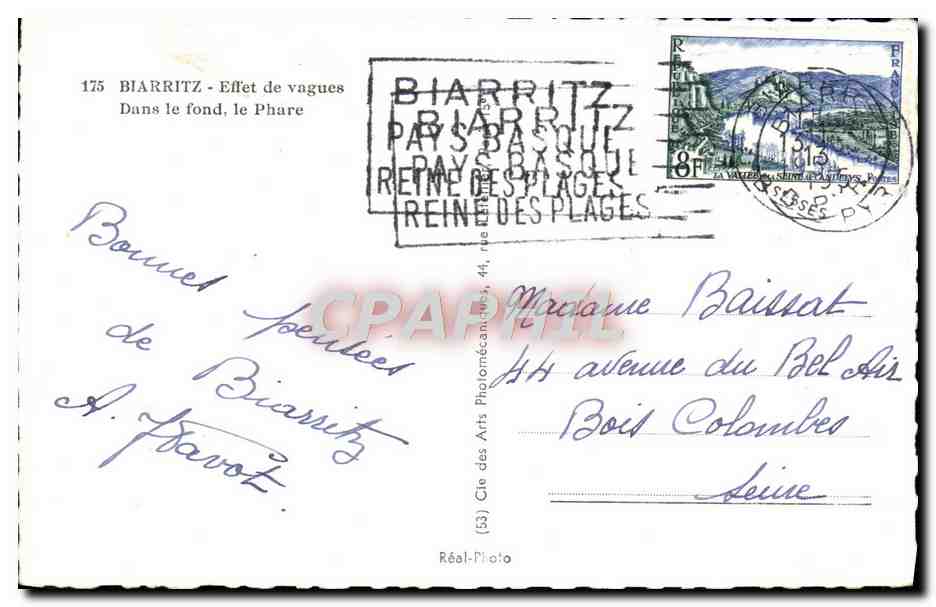 175 BIARRITZ - Effet de vagues
Dans le fond, le Phare
BIARRITZ
BIARRITZ
PAYS BASQUE
PAYS BASQUE
REINE DES PLAGES
REINE DES PLAGES
REPUBLIQUE
FRANCAISE
8F
LA VALLEE DE LA SEINE AUX ANDELYS POSTES
13
13
Bonnes pensées
de Biarritz
A.
CPAPHIL
(53) Cie des Arts Photomécaniques, 44, rue
Madame Baissat
44 avenue du Bel Air
Bois Colombes
Seine
Réal-Photo